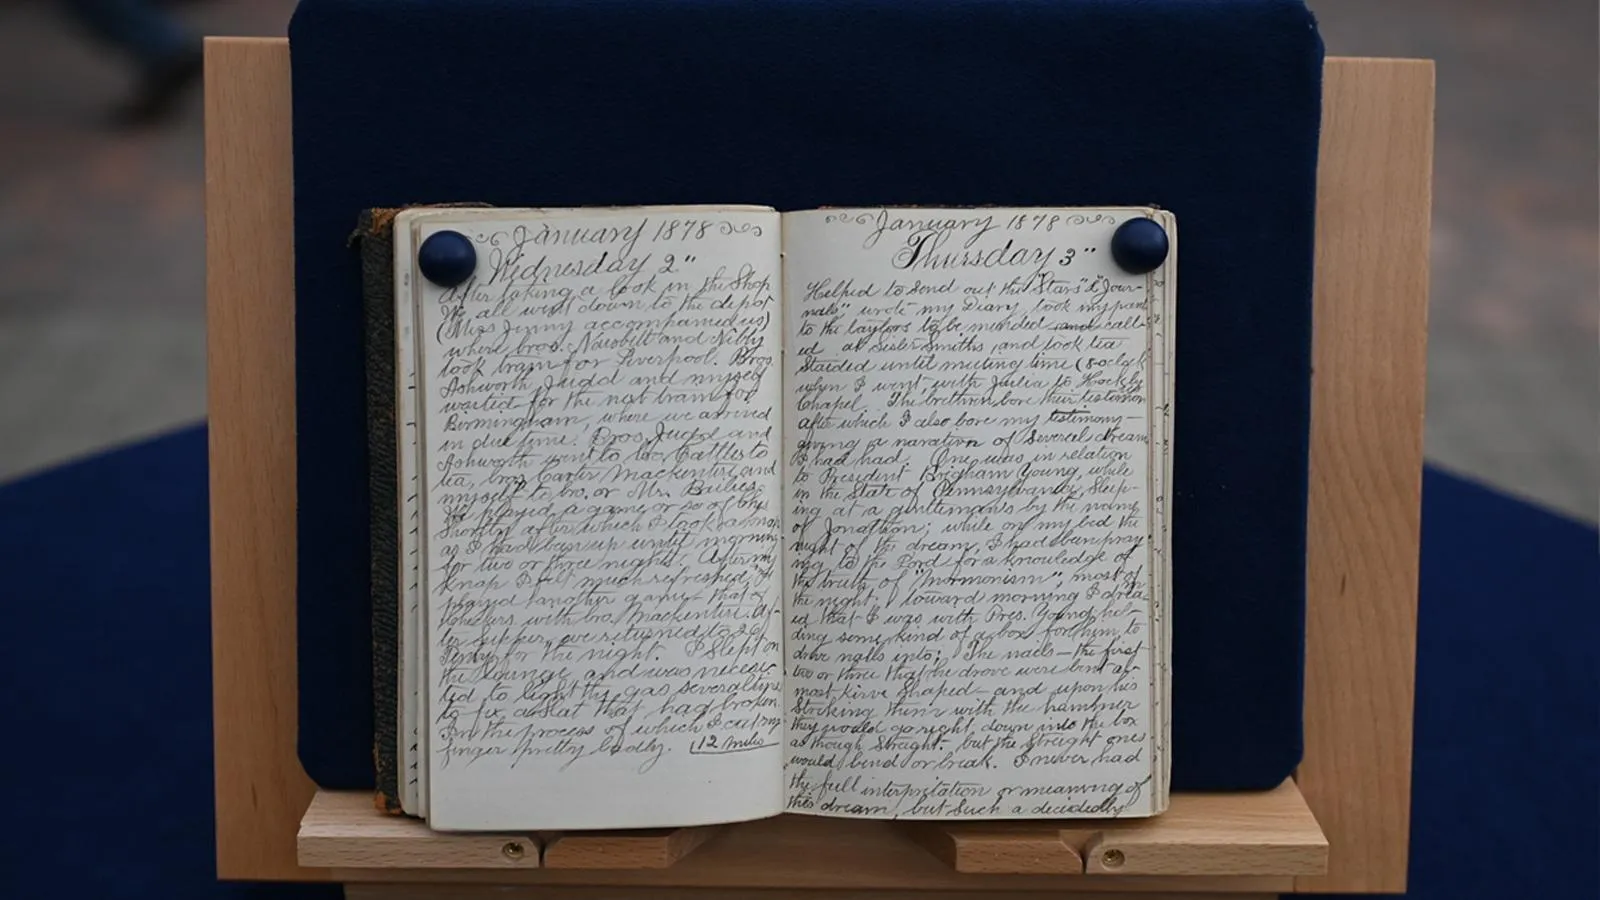 January 1878
Wednesday 2"
After taking a look in the Shop
We all went down to the depot
(Miss Jenny accompanied us)
where bros. Naisbitt and Nibly
took train for Liverpool. Bros.
Ashworth Judd and myself
waited for the next train for
Birmingham, where we arrived
in due time. Bros. Judd and
Ashworth went to bro. to
tea, bros Carter Mackentire and
myself to bro. or Mr. Bailies.
We played a game or so of
Shortly after which I took a knap
as I had been up until morning
for two or three nights. After my
Knap I felt much refreshed,
played another game that of
checkers with bro. Mackentire. Af-
ter supper, we returned to 26
for the night. I slept on
the lounge and was necessi-
ted to light the gas several times
to fix a slat that had broken.
In the process of which I cut my
finger pretty badly. 12 miles
January 1878
Thursday 3"
Helped to send out the "Stars" & "Jour-
nals", wrote my Diary, took my pants
to the taylors to be mended and call-
ed at sister Smiths, and took tea
Staided until meeting time (8-oclock
when I went with Julia to Hockly
Chapel. The brethren bore their testimon
after which I also bore my testimony—
giving a naration of Severeal dream
I had had. One was in relation
to President Brigham Young, while
in the State of Pennsylvania, Sleep-
ing at a gentleman's by the name
of Jonathan; while on my bed the
night of the dream, I had been pray
ing to the Lord for a knowledge of
the truth of "Mormonism", most of
the night; toward morning I dream-
ed that I was with Pres. Young hol-
ding some kind of a box for him to
drive nails into; The nails—the first
two or three that he drove were bent al-
most kirve Shaped—and upon his
Striking them with the hammer
they would go right down into the box
as though Straight: but the Straight ones
would bend or break. I never had
the full interpretation or meaning of
this dream, but Such a decidedly